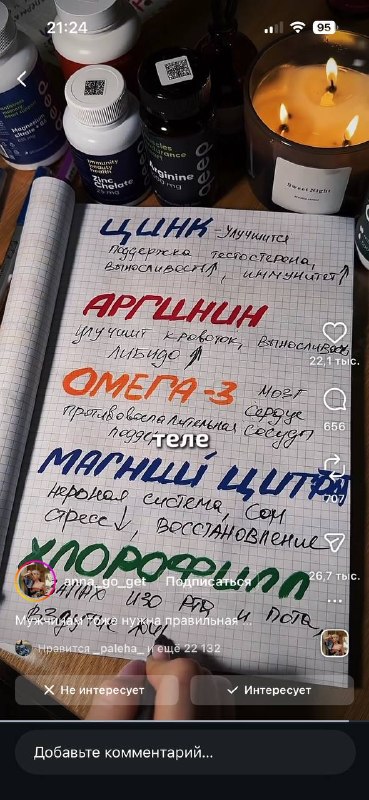 21:24
95
Magnesium
immunity
beauty
health
Zinc
Chelate
25 mg
endurance
Arginine
Sweet Night
ЦИНК - улучшится
поддержка тестостерона,
выносливость↑, иммунитет↑
АРГИНИН
улучшит кровоток, выносливость
либидо ↑
22,1 тыс.
ОМЕГА-3 мозг
сердце
противовоспалительная сосуды
теле
656
МАГНИЙ ЦИТРАТ
707
нервная система, сон
стресс↓, восстановление
ХЛОРОФИЛЛ
26,7 тыс.
anna_go_get Подписаться
запах изо рта и пота,
Мужчинам тоже нужна правильная ...
вздутие
Нравится _paleha_ и ещё 22 132
Не интересует
Интересует
Добавьте комментарий...